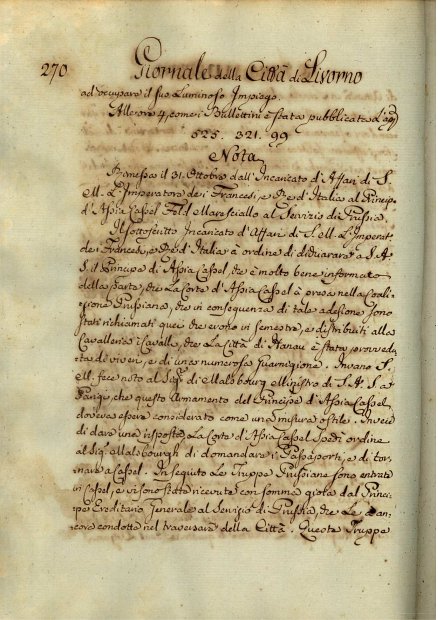 270 Giornale della Città di Livorno
ad occupare il suo Luminoso Impiego.
Alle ore 4, come i Bullettini è stata pubblicata l'
525. 321. 99
Nota
Rimessa il 31. Ottobre dall' Incaricato d'Affari di S.
M. L'Imperatore de i Francesi, e Re d'Italia al Princip
d'Assia Cassel Feld Maresciallo al Servizio di Prussia.
Il sottoscritto Incaricato d'Affari di S. M. L'Imperat.
de i Francesi, e Re d'Italia à ordine di dichiarare a S. A.
S. il Principe di Assia Cassel, che è molto bene informato
della parte, che La Corte d'Assia Cassel à presa nella Coali-
zione Prussiana, che in conseguenza di tale adesione sono
stati richiamati quei che erano in semestre, e distribuiti alla
Cavalleria i Cavalli, che La Città di Hanau è stata provvedu
ta di viveri, e di una numerosa Guarnigione. Invano S.
M. fece noto al Sig. di Malsbourg Ministro di S. A. S. a
Parigi che questo Armamento del Principe d'Assia Cassel
doveva essere considerato come una misura ostile. Invece
di dare una risposta, La Corte d'Assia Cassel spedì ordine
al Sig. Malsbourgh di domandare i Passaporti, e di tor-
nare a Cassel. In seguito Le Truppe Prussiane sono entrate
in Cassel, e vi sono state ricevute con somma gioia dal Princi-
pe Ereditario Generale al Servizio di Prussia, che Le à an-
cora condotte nel traversare della Città. Queste Truppe